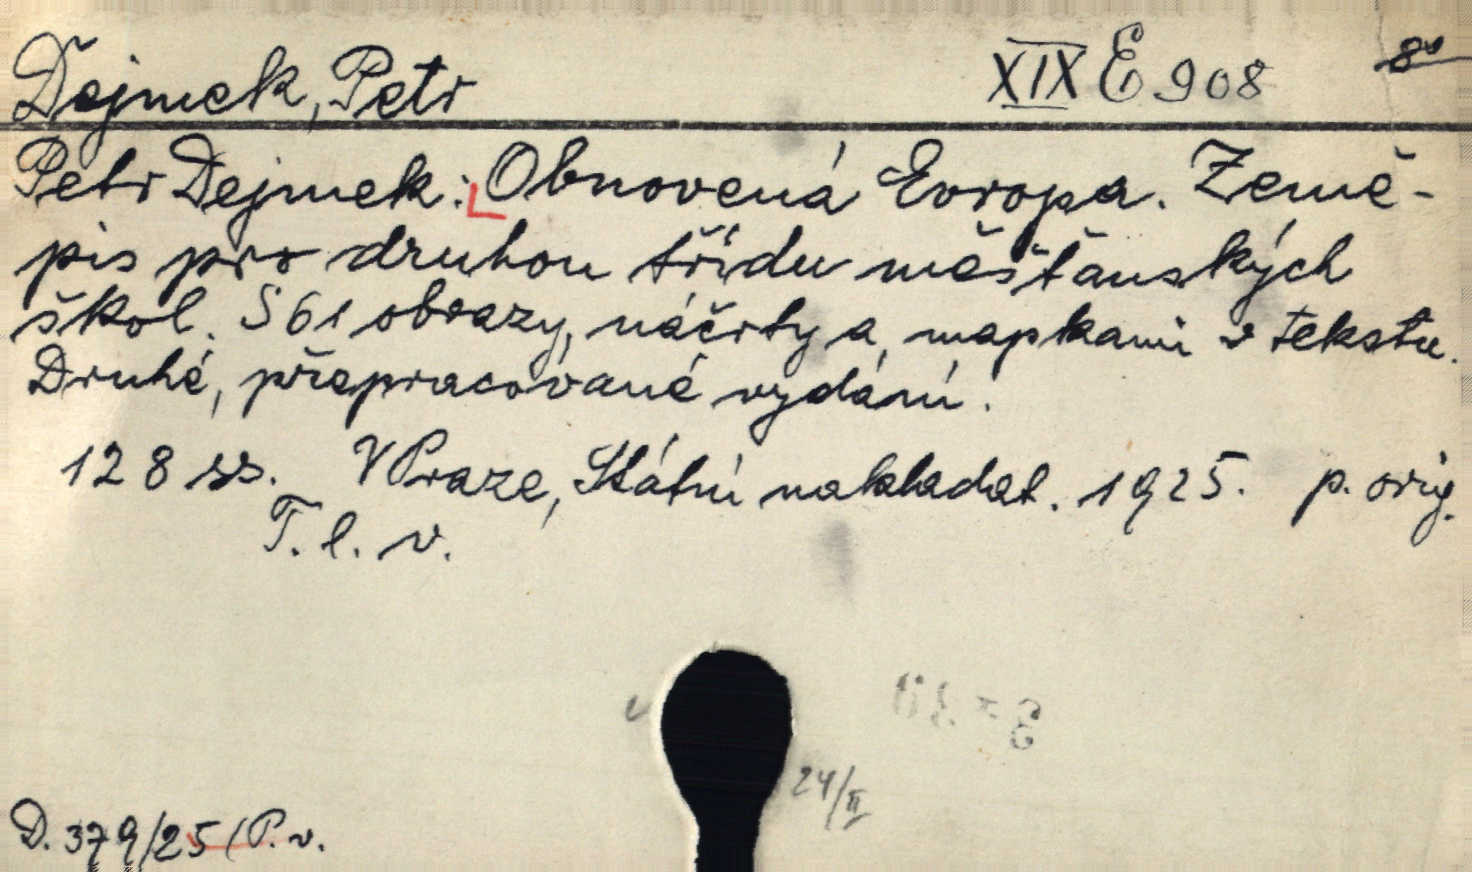 Dejmek, Petr XIX E 908 8°
Petr Dejmek: Obnovená Evropa. Země-
pis pro druhou třídu měšťanských
škol. S 61 obrazy, náčrty a mapkami v tekstu.
Druhé, přepracované vydání.
128 ss. V Praze, Státní nakladat. 1925. p. orig.
T. l. v.
24/II
D. 379/25 (P. v.